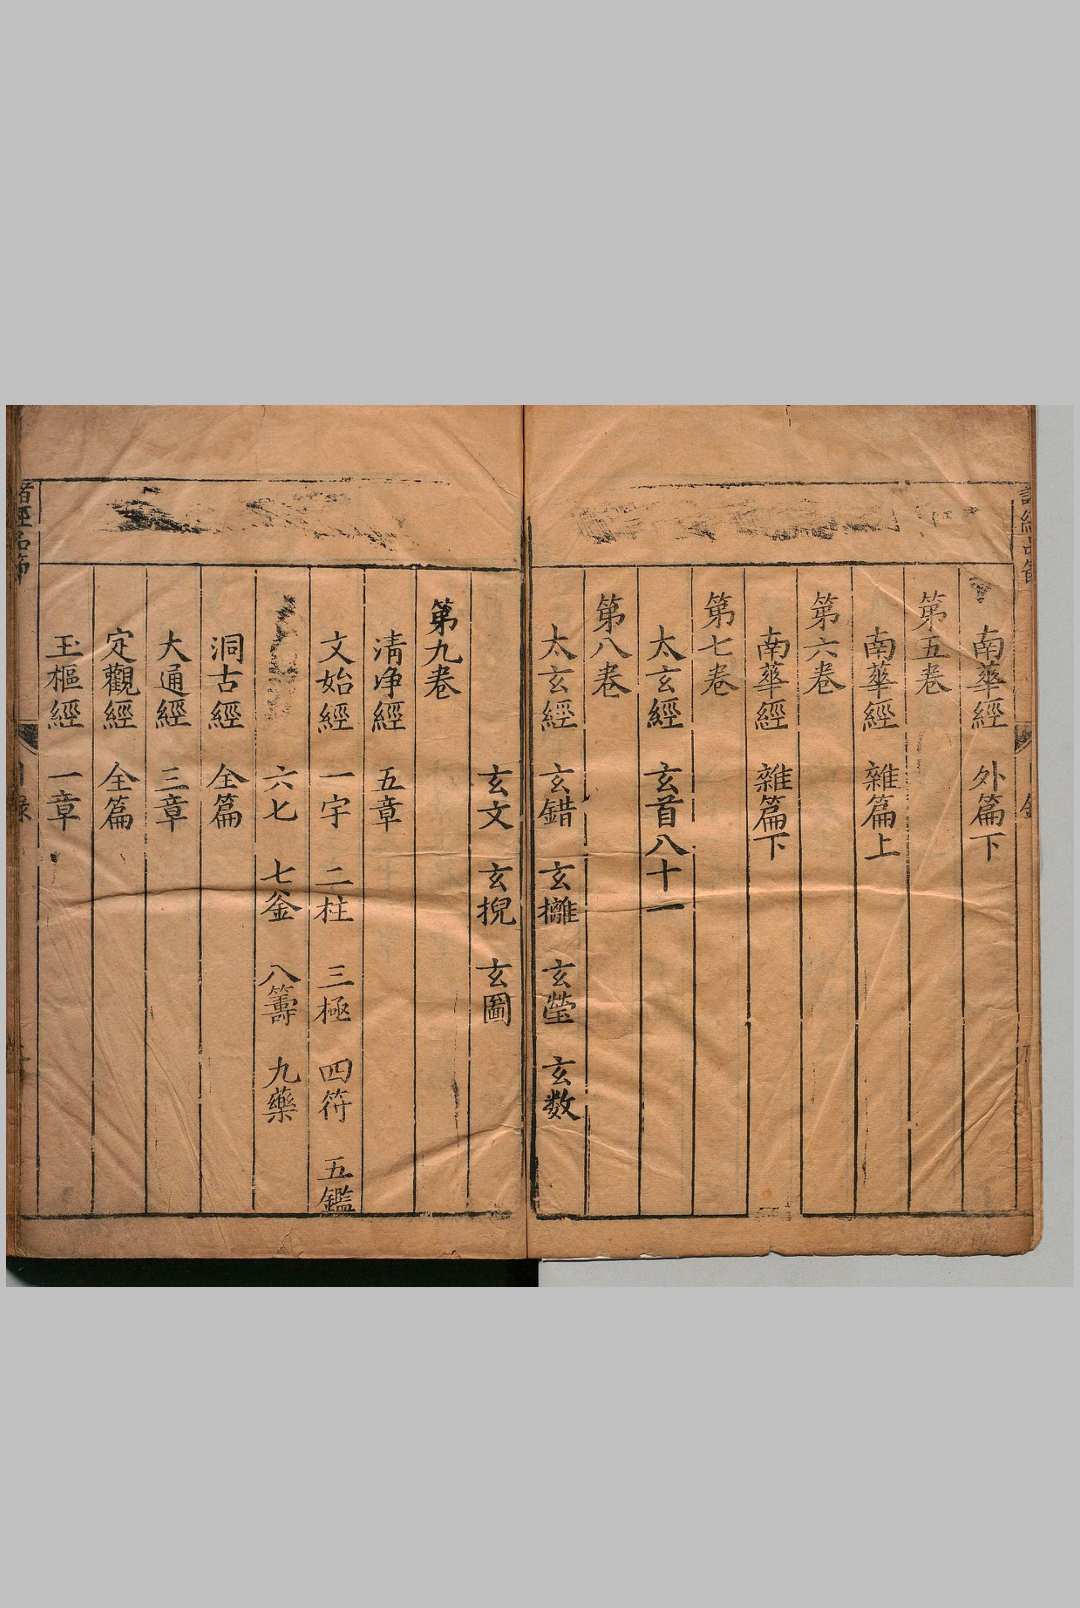 南華經 外篇下
第五卷
南華經 雜篇上
第六卷
南華經 雜篇下
第七卷
太玄經 玄首八十一
第八卷
太玄經 玄錯 玄攡 玄瑩 玄数
玄文 玄掜 玄圖
第九卷
清净經 五章
文始經 一宇 二柱 三極 四符 五鑑
六七 七釡 八籌 九藥
洞古經 全篇
大通經 三章
定觀經 全篇
玉樞經 一章